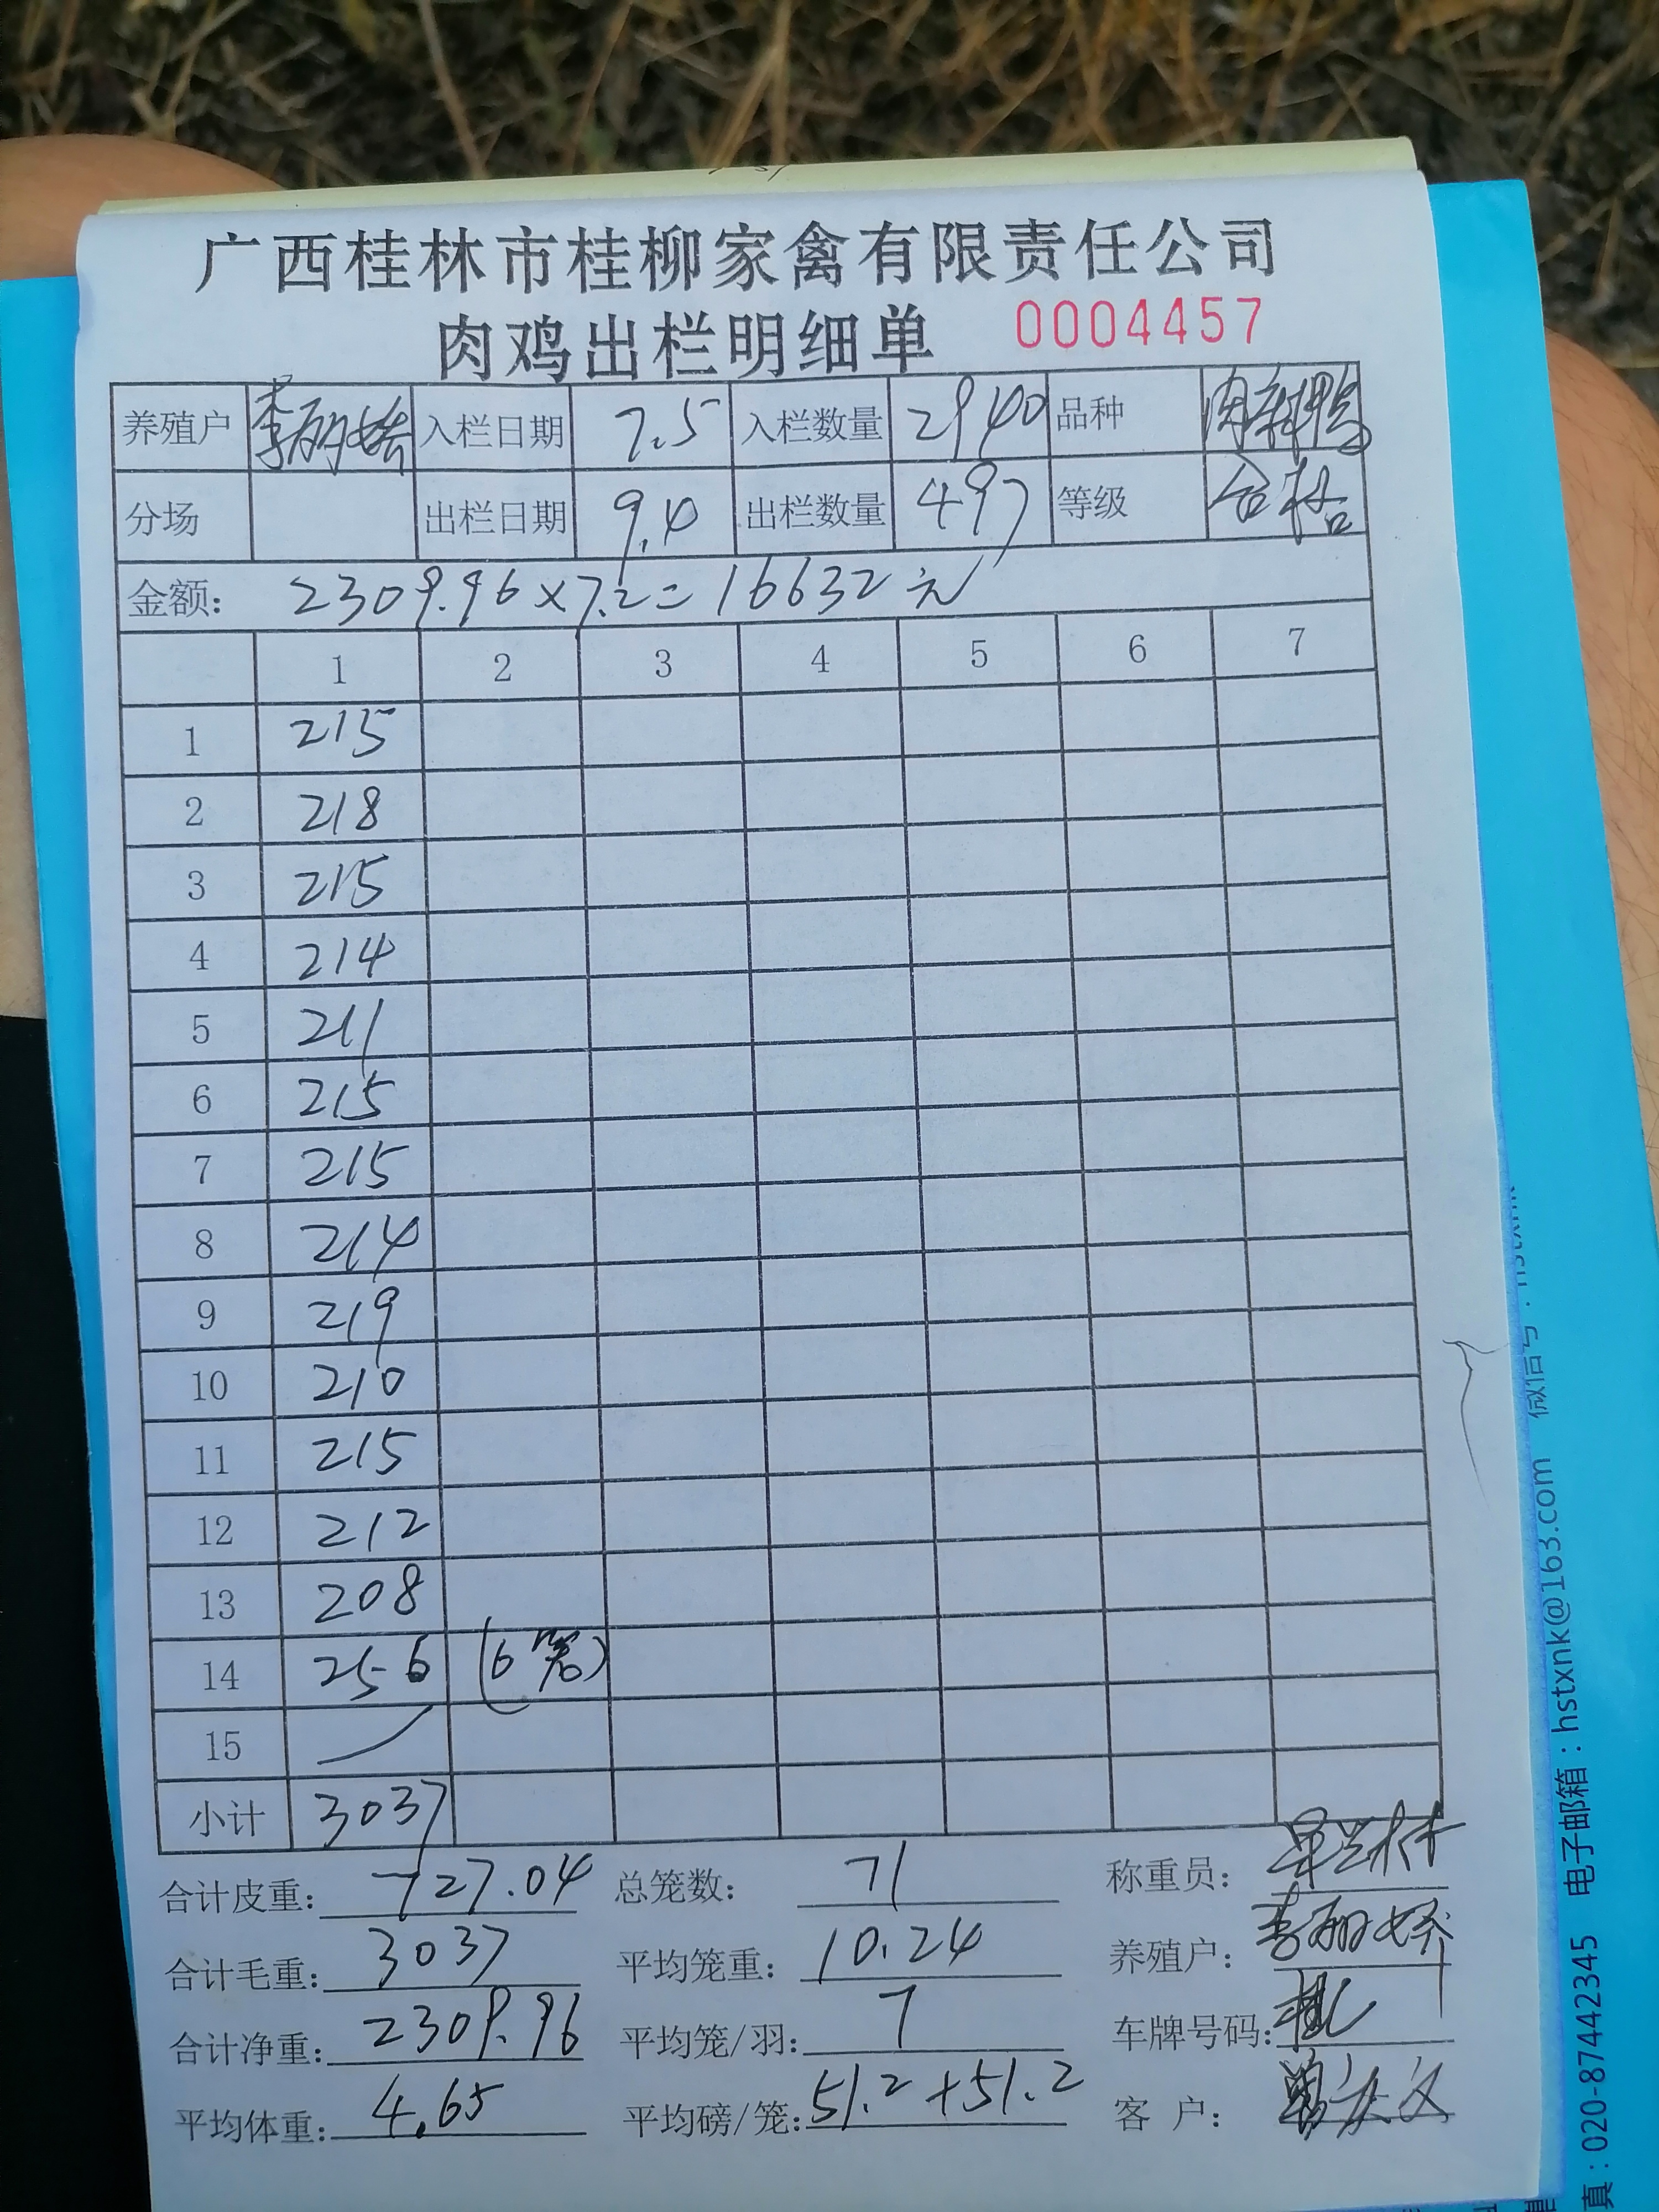 广西桂林市桂柳家禽有限责任公司
肉鸡出栏明细单 0004457
养殖户 李丽娇 入栏日期 7.5 入栏数量 2940 品种
分场 出栏日期 9.10 出栏数量 497 等级 合格
金额: 2309.96×7.2=16632元
1 2 3 4 5 6 7
1 215
2 218
3 215
4 214
5 211
6 215
7 215
8 214
9 219
10 210
11 215
12 212
13 208
14 256 (6笼)
15
小计 3037
合计皮重: 727.04 总笼数: 71 称重员:
合计毛重: 3037 平均笼重: 10.24 养殖户: 李丽娇
合计净重: 2309.96 平均笼/羽: 7 车牌号码: 桂
平均体重: 4.65 平均磅/笼: 51.2+51.2 客 户:
真:020-87442345 电子邮箱:hstxnk@163.com 微信号:hstxnk